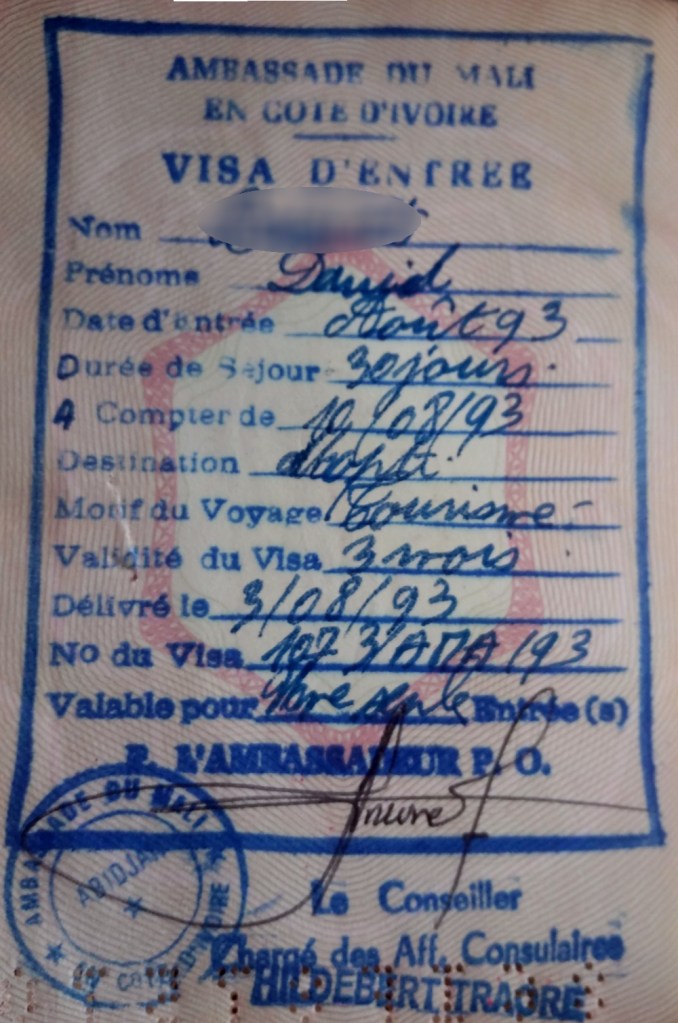 AMBASSADE DU MALI
EN COTE D'IVOIRE
VISA D'ENTREE
Nom
Prénoms David
Date d'Entrée Août 93
Durée de Séjour 30 jours.
A Compter de 10/08/93
Destination
Motif du Voyage Tourisme -
Validité du Visa 3 mois
Délivré le 3/08/93
No du Visa 1073/AMA/93
Valable pour seule Entrée(s)
P. L'AMBASSADEUR P. O.
AMBASSADE DU MALI
ABIDJAN
COTE D'IVOIRE
Le Conseiller
Chargé des Aff. Consulaires
HILDEBERT TRAORE